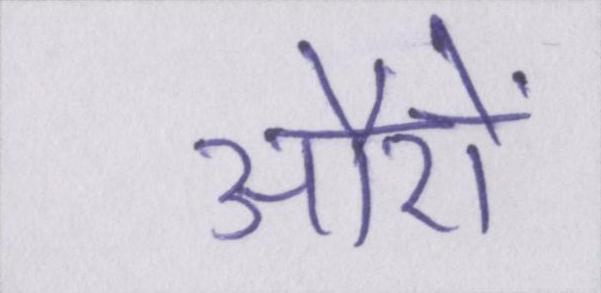 औरों